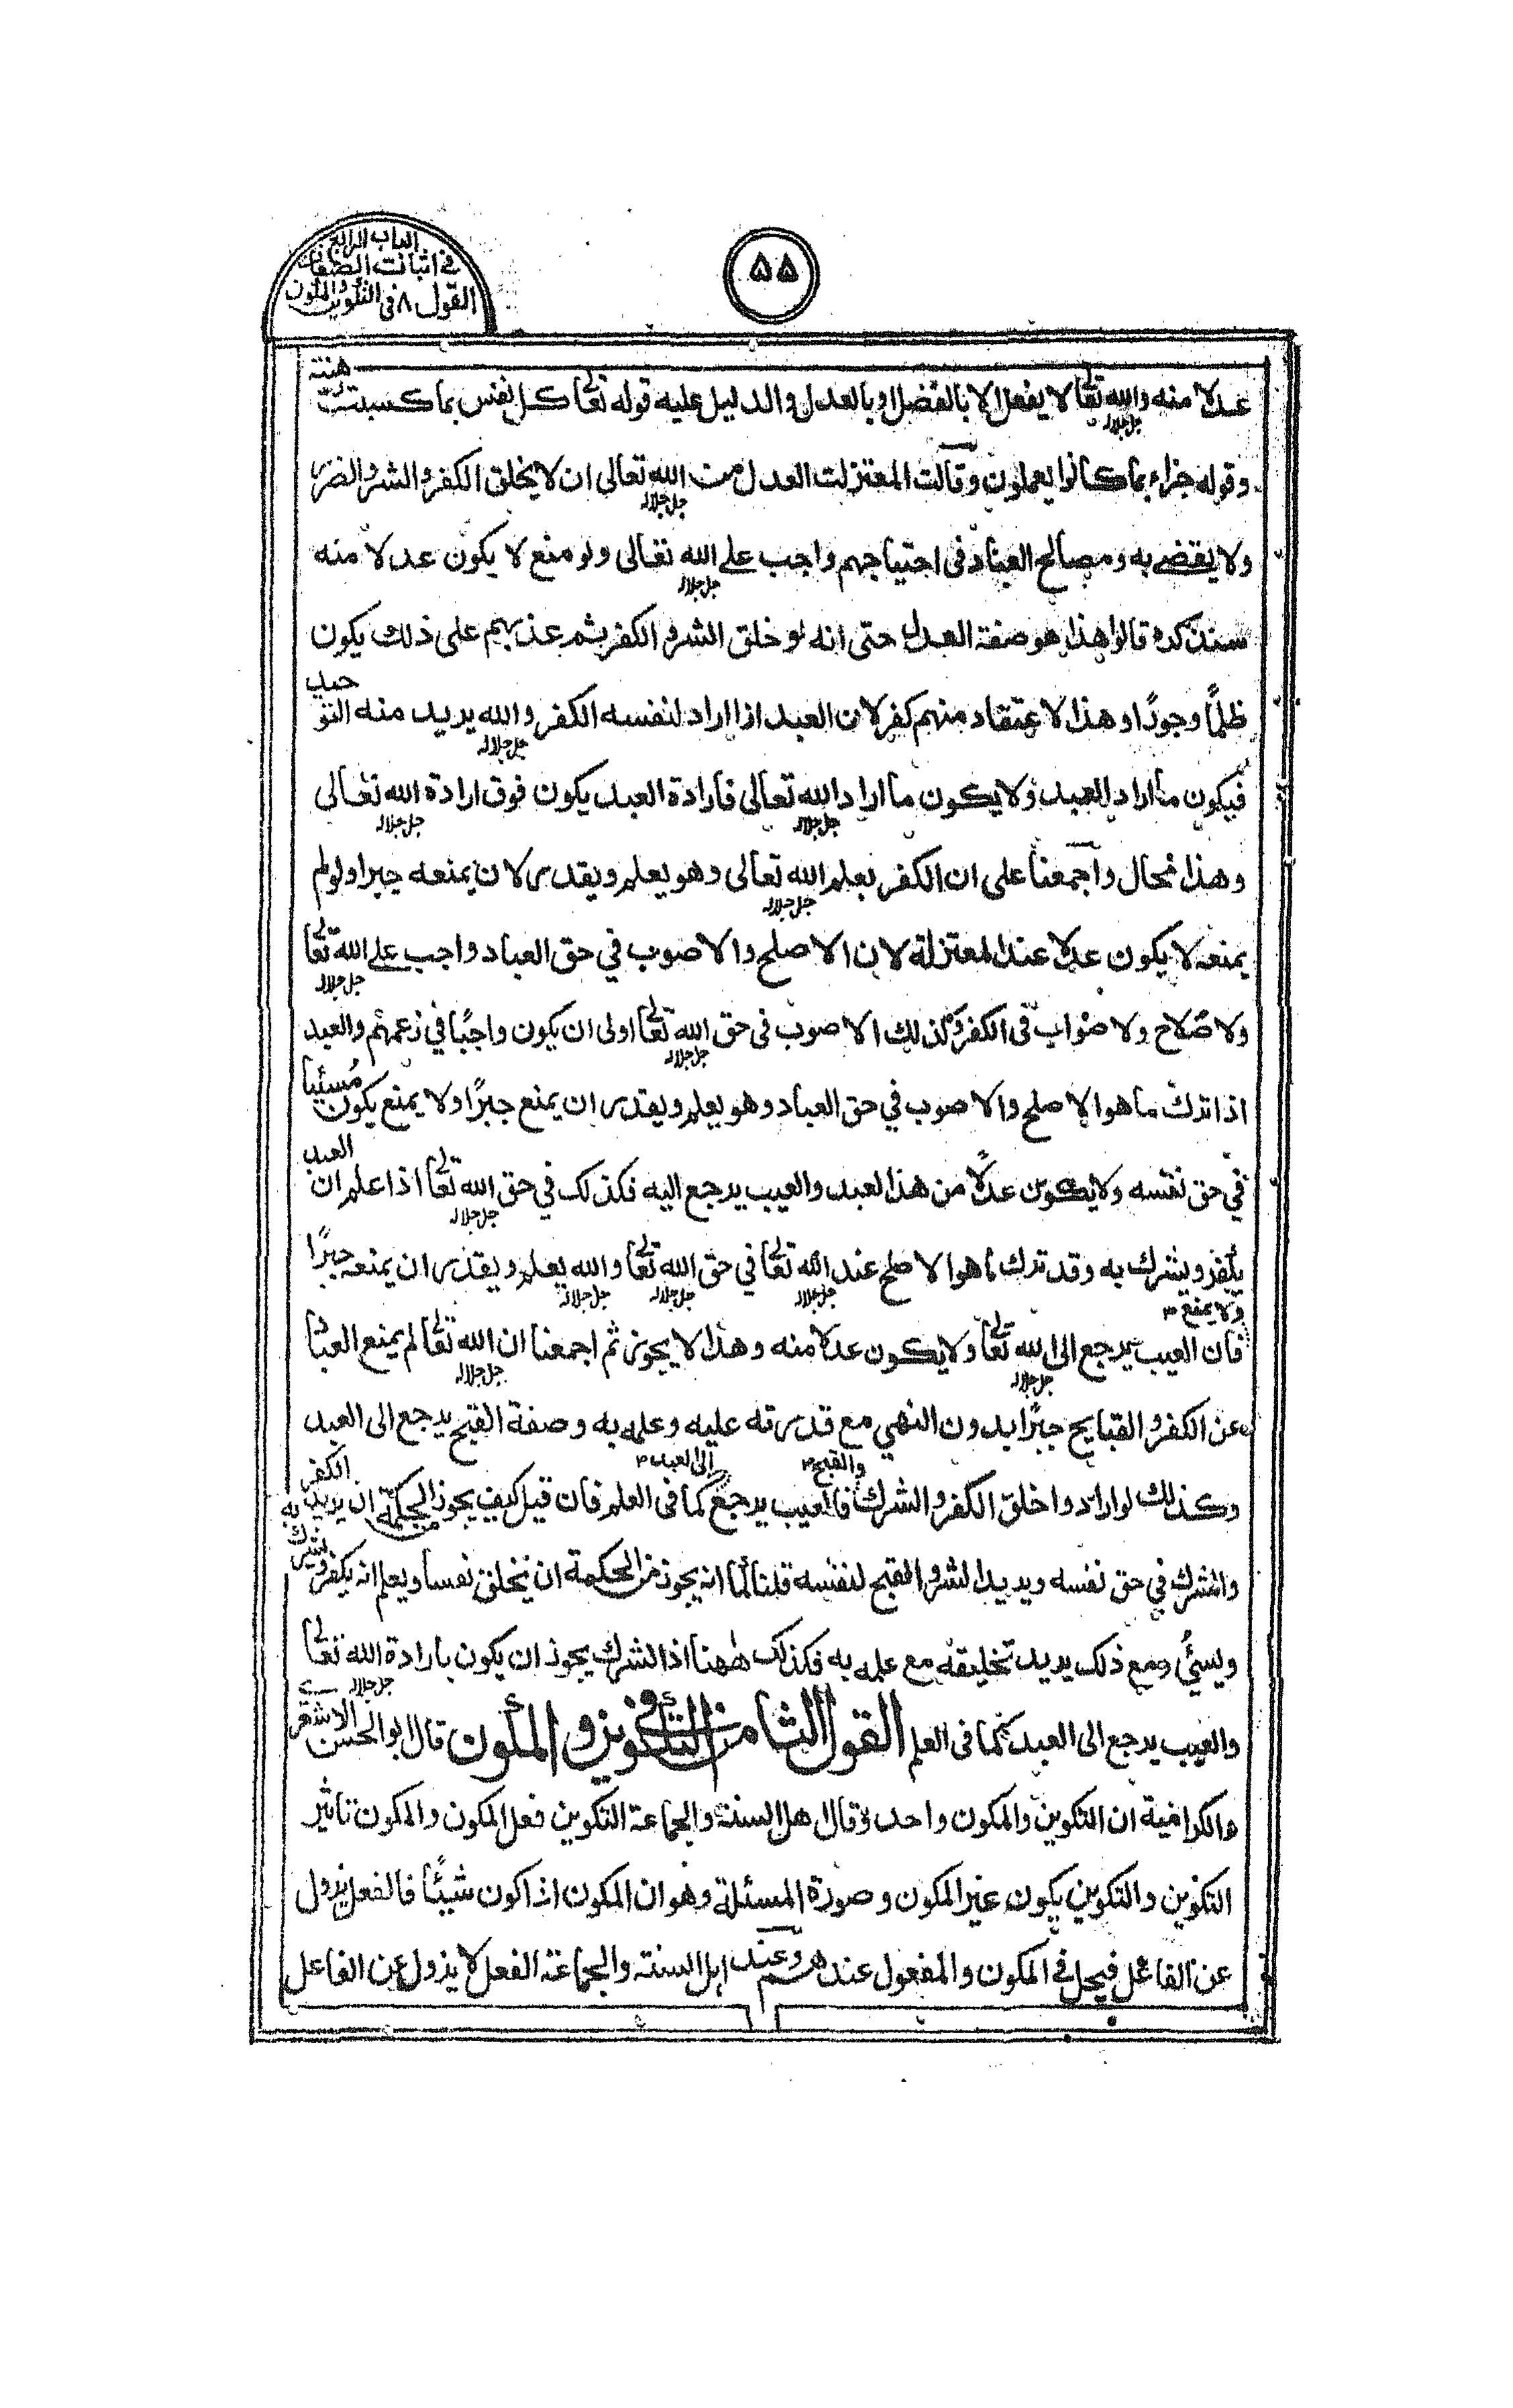 الباب الرابع
في اثبات الصفات
القول ٨ في التكوين والمكون
٥٥
عدلا منه والله تعالى جل جلاله لا يفعل الا بالفضل او بالعدل والدليل عليه قوله تعالى كل نفس بما كسبت رهينة
وقوله جزاء بما كانوا يعملون وقالت المعتزلت العدل من الله تعالى جل جلاله ان لا يخلق الكفر والشر والضر
ولا يقضے به ومصالح العباد فى احتياجهم واجب علے الله تعالى جل جلاله ولو منع لا يكون عدلا منه
سنذكره قالوا هذا هو صفة العدل حتى انه لو خلق الشر و الكفر ثم عذبهم على ذلك يكون
ظلمًا وجورًا وهذا لاعتقاد منهم كفر لان العبد اذا اراد لنفسه الكفر والله جل جلاله يريد منه التوحيد
فيكون ما اراد العبد ولا يكون ما اراد الله تعالى جل جلاله فارادة العبد يكون فوق ارادة الله تعالى جل جلاله
وهذا محال واجمعنا على ان الكفر بعلم الله تعالى جل جلاله وهو يعلم ويقدر لان يمنعه جبرا ولو لم
يمنعه لا يكون عدلا عند المعتزلة لان الاصلح والاصوب في حق العباد واجب علے الله تعالى جل جلاله
ولا صلاح ولا صواب فى الكفر وكذلك الاصوب فى حق الله تعالى جل جلاله اولى ان يكون واجبًا في زعمهم والعبد
اذا ترك ما هو الاصلح والاصوب في حق العباد وهو يعلم ويقدر ان يمنع جبرًا ولا يمنع يكون مُسئيا
في حق نفسه ولا يكون عدلًا من هذا لعبد والعيب يرجع اليه فكذلك في حق الله تعالى جل جلاله اذا علم ان العبد
يكفر ويشرك به وقد ترك ما هو الاصلح عند الله تعالى جل جلاله في حق الله تعالى جل جلاله والله جل جلاله يعلم ويقدر ان يمنعه جبرًا
ولا يمنع ٣ فان العيب يرجع الى الله تعالى جل جلاله ولا يكون عدلا منه وهذا لا يجوز ثم اجمعنا ان الله تعالى جل جلاله لم يمنع العباد
عن الكفر و القبايح جبرًا بدون النهي مع قدرته عليه وعلمه به وصفة القبح يرجع الى العبد
وكذلك لو اراد و اخلق الكفر و الشرك والقبح ٣ فالعيب يرجع الى العبد ٣ كما فى العلم فان قيل كيف يجوز من الحكمة ان يريد به الكفر
والشرك في حق نفسه ويريد الشر و القبح لنفسه قلنا لما انه يجوز من الحكمة ان يخلق نفسا ويعلم انه يكفر ويشرك
ويسئي ومع ذلك يريد تخليقه مع علمه به فكذلك ههنا اذ الشرك يجوز ان يكون بارادة الله تعالى جل جلاله
والعيب يرجع الى العبد كما فى العلم القول الثامن فى التكوين و المكون قال ابو الحسن الاشعرے
والكرامية ان التكوين والمكون واحد وقال اهل السنة والجماعة التكوين فعل المكون والمكون تاثير
التكوين والتكوين يكون غير المكون وصورة المسئلة وهو ان المكون اذا كون شيئًا فالفعل يزول
عن الفاعل فيحل فى المكون والمفعول عندهم وعند اہل السنة والجماعة الفعل لا يزول عن الفاعل